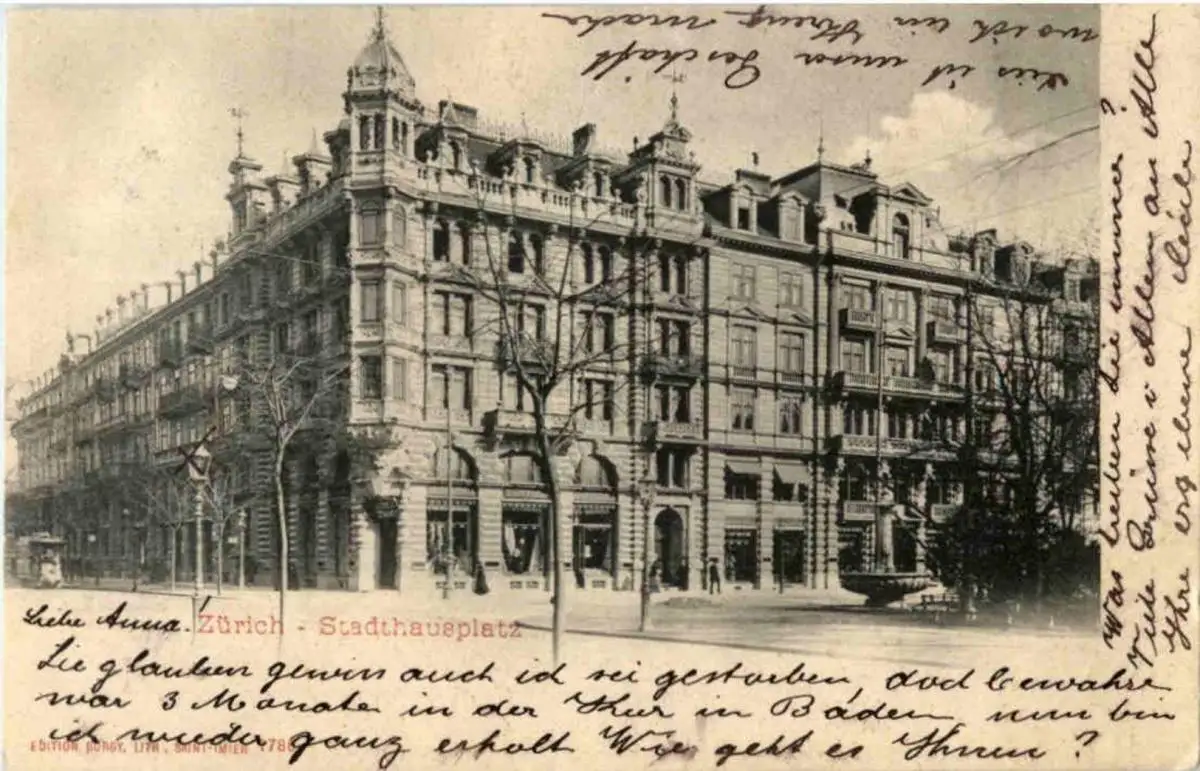 Dies ist unser Geschäft
wo ich ein Streng mache
Liebe Anna.
Zürich - Stadthausplatz
Sie glauben gewiss auch ich sei gestorben, doch bewahre
war 3 Monate in der Kur in Baden nun bin
ich wieder ganz erholt Wie geht es Ihnen?
EDITION BURGY, LITH., SAINT-IMIER 1786
Was treiben Sie immer?
Viele Grüsse v Allem an Alle
Ihre erg ebene